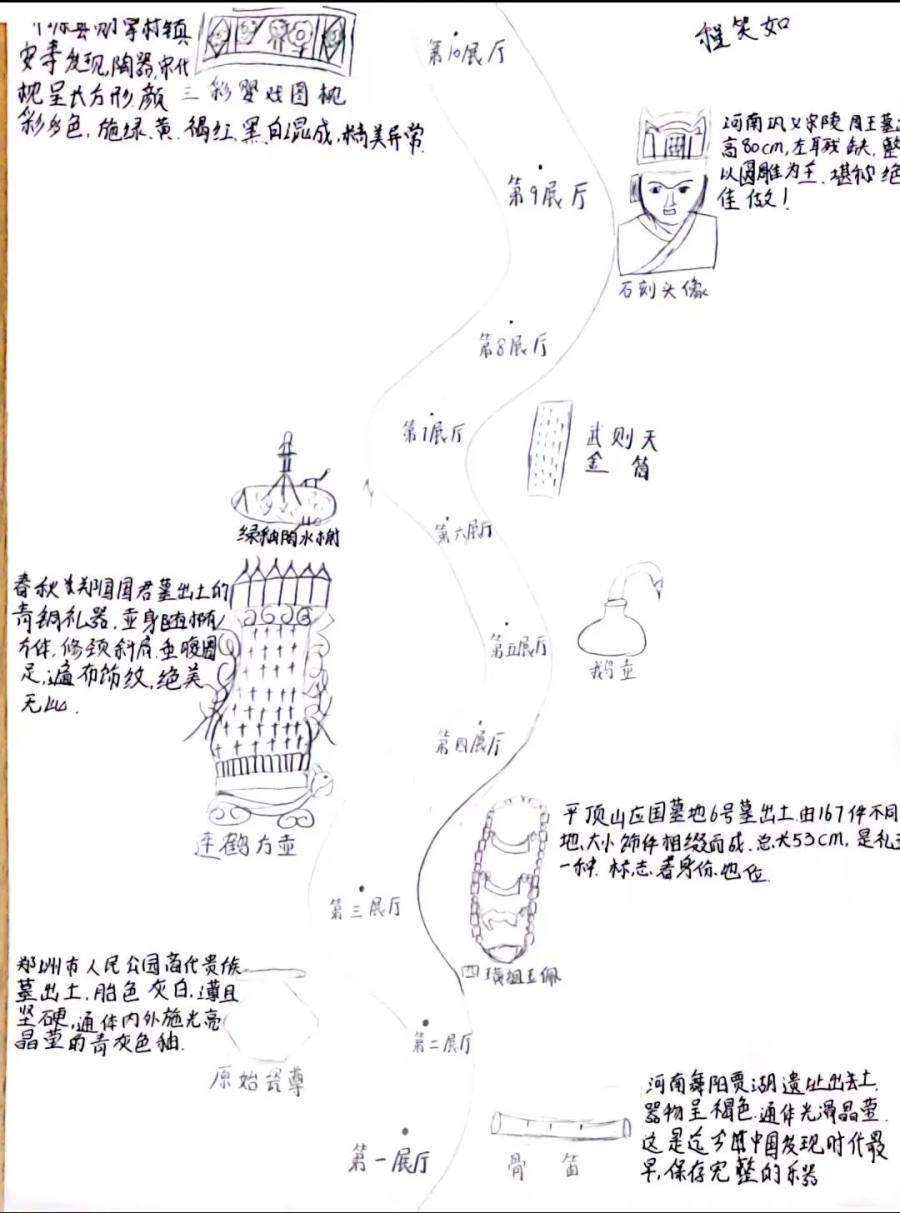 程笑如
村镇
发现,陶器,宋代
枕呈长方形,颜
三彩婴戏图枕
彩多色,施绿、黄、褐红、黑、白混成,精美异常.
第10展厅
河南巩义宋陵周王墓
高80cm,左耳残缺,整
以圆雕为主,堪称绝
佳做!
第9展厅
石刻头像
第8展厅
第7展厅
武则天
金简
绿釉陶水榭
第六展厅
春秋郑国国君墓出土的
青铜礼器,壶身
方体,修颈斜肩,垂腹圈
足,遍布饰纹,绝美
第五展厅
鹅壶
第四展厅
莲鹤方壶
平顶山应国墓地6号墓出土.由167件不同
地,大小饰件相缀而成.总长53cm,是礼玉
一种.标志着身份、地位.
第三展厅
四璜组玉佩
郑州市人民公园商代贵族
墓出土.胎色灰白,薄且
坚硬,通体内外施光亮
晶莹的青灰色釉.
第二展厅
原始瓷尊
河南舞阳贾湖遗址出土.
器物呈褐色.通体光滑晶莹.
这是迄今中国发现时代最
早,保存完整的乐器
第一展厅
骨笛